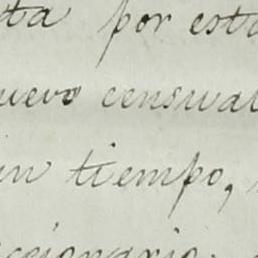 ta por esta
uevo censual
un tiempo,
ccionario.